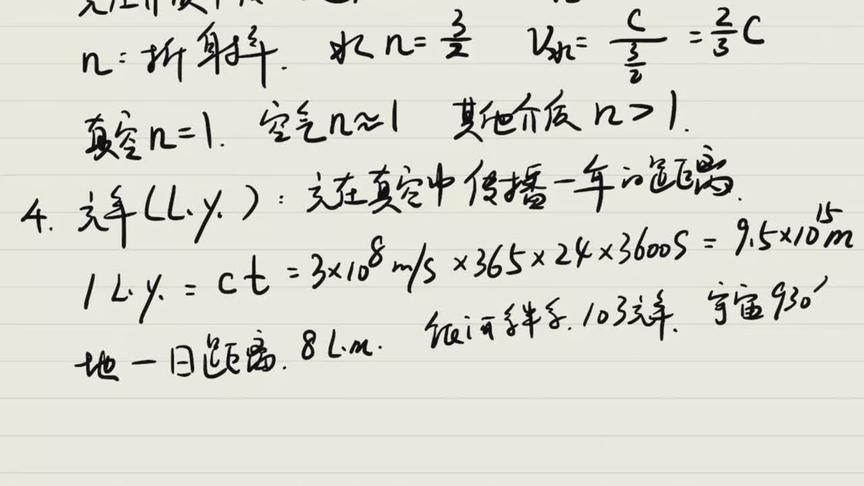 n：折射率. 水 n=3/2 V水= C/(3/2) = 2/3 C
真空 n=1. 空气 n≈1 其他介质 n>1.
4. 光年(L.y.)：光在真空中传播一年的距离.
1 L.y. = ct = 3×10⁸ m/s ×365×24×3600S = 9.5×10¹⁵ m
地一日距离. 8 L.m. 银河系半径. 10³光年. 宇宙 930'